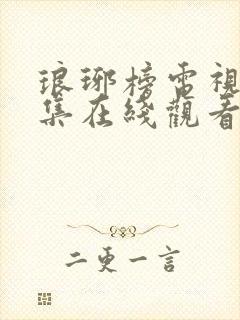 琅琊榜電視
集在綫觀看
二更一言